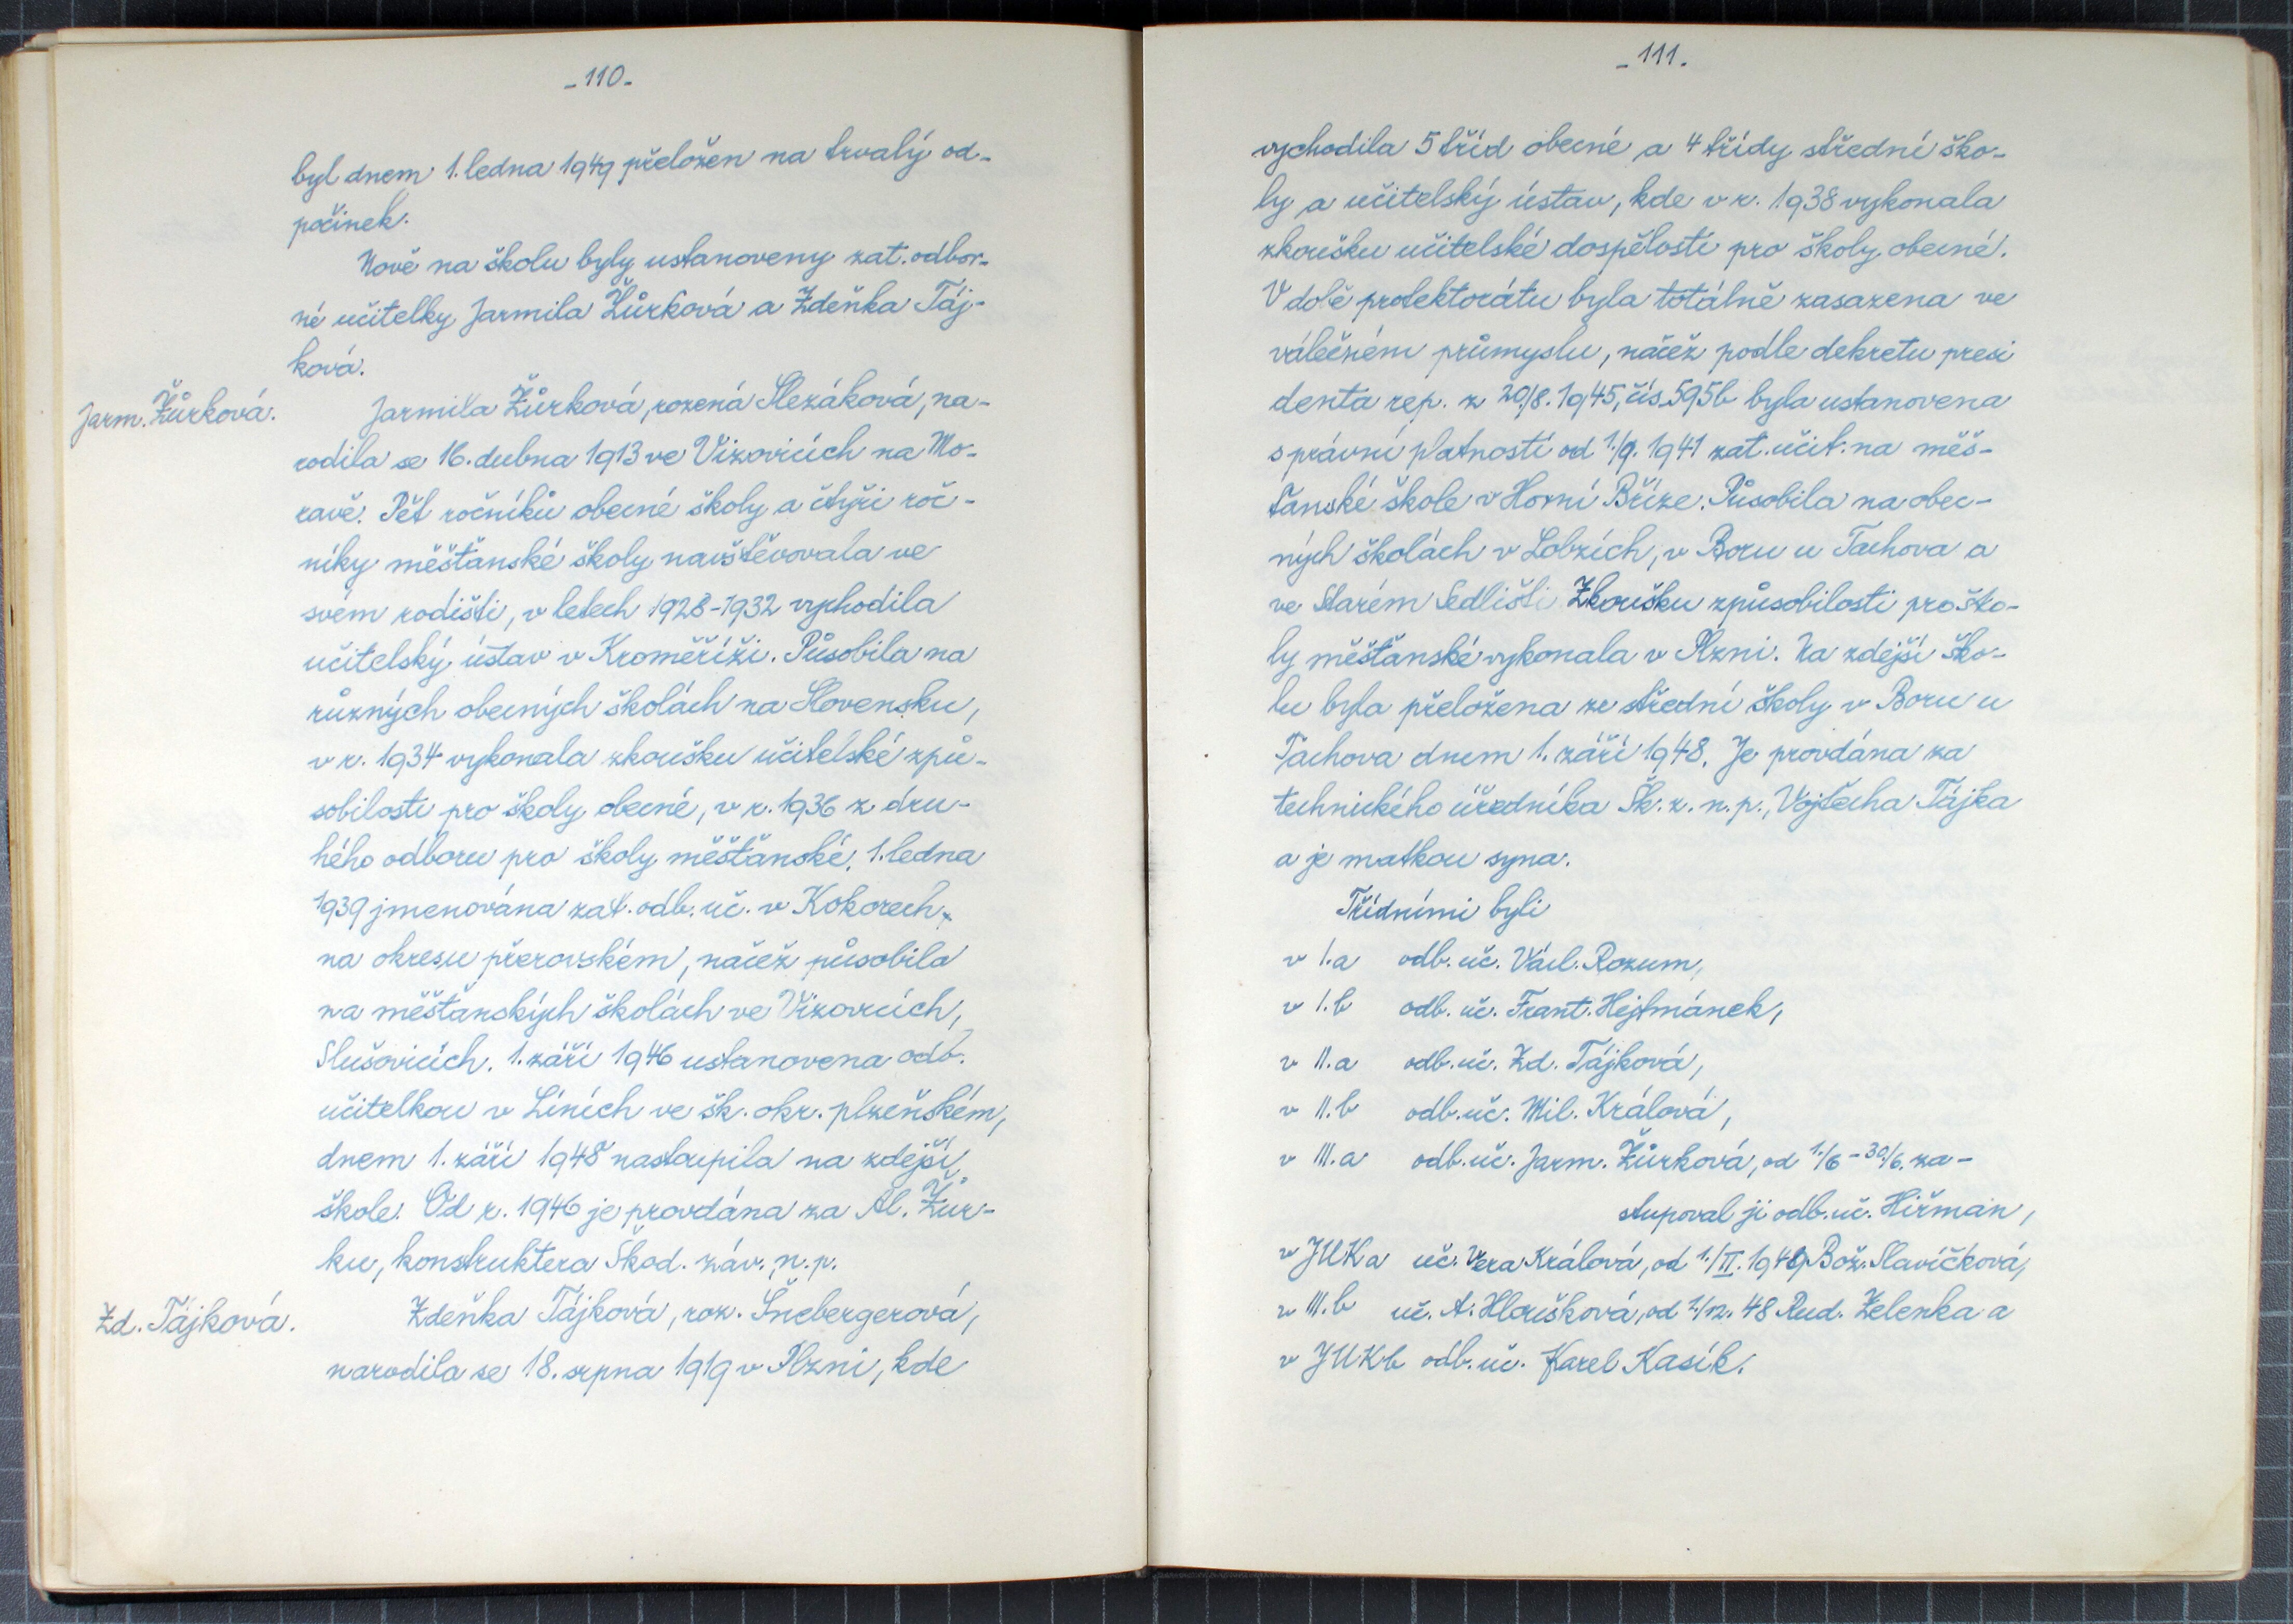 -110-
byl dnem 1. ledna 1949 přeložen na trvalý od-
počinek.
Nově na školu byly ustanoveny zat. odbor-
né učitelky Jarmila Žůrková a Zdeňka Táj-
ková.
Jarm. Žůrková.
Jarmila Žůrková, rozená Slezáková, na-
rodila se 16. dubna 1913 ve Vizovicích na Mo-
ravě. Pět ročníků obecné školy a čtyři roč-
níky měšťanské školy navštěvovala ve
svém rodišti, v letech 1928-1932 vychodila
učitelský ústav v Kroměříži. Působila na
různých obecných školách na Slovensku,
v r. 1934 vykonala zkoušku učitelské způ-
sobilosti pro školy obecné, v r. 1936 z dru-
hého odboru pro školy měšťanské. 1. ledna
1939 jmenována zat. odb. uč. v Kokorech
na okresu přerovském, načež působila
na měšťanských školách ve Vizovicích,
Slušovicích. 1. září 1946 ustanovena odb.
učitelkou v Líních ve šk. okr. plzeňském,
dnem 1. září 1948 nastoupila na zdejší
škole. Od r. 1946 je provdána za Al. Žůr-
ku, konstruktera Škod. záv., n. p.
Zd. Tájková.
Zdeňka Tájková, roz. Šnebergerová,
narodila se 18. srpna 1919 v Plzni, kde
-111-
vychodila 5 tříd obecné a 4 třídy střední ško-
ly a učitelský ústav, kde v r. 1938 vykonala
zkoušku učitelské dospělosti pro školy obecné.
V době protektorátu byla totálně zasazena ve
válečném průmyslu, načež podle dekretu presi
denta rep. z 20./8. 1945, čís. 595b byla ustanovena
s právní platností od 1./9. 1941 zat. učit. na měš-
ťanské škole v Horní Bříze. Působila na obec-
ných školách v Lobzích, v Boru u Tachova a
ve Starém Sedlišti Zkoušku způsobilosti pro ško-
ly měšťanské vykonala v Plzni. Na zdejší ško-
lu byla přeložena ze střední školy v Boru u
Tachova dnem 1. září 1948. Je provdána za
technického úředníka Šk. z. n. p., Vojtěcha Tájka
a je matkou syna.
Třídními byli
v I.a odb. uč. Václ. Rozum,
v I.b odb. uč. Frant. Hejtmánek,
v II.a odb. uč. Zd. Tájková,
v II.b odb. uč. Mil. Králová,
v III.a odb. uč. Jarm. Žůrková, od 1./6 - 30./6. za-
stupoval ji odb. uč. Hiřman,
v JUKa uč. Věra Králová, od 1./II. 1949 Bož. Slavíčková,
v III.b uč. A. Hloušková, od 1./12. 48 Rud. Zelenka a
v JUKb odb. uč. Karel Kasík.